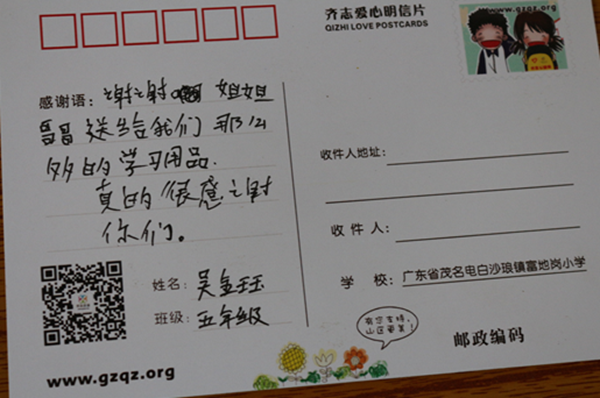 齐志爱心明信片
QIZHI LOVE POSTCARDS
www.gzqz.org
感谢语：谢谢 姐姐
哥哥送给我们那么
多的学习用品.
真的很感谢
你们。
收件人地址：
收件人：
姓名：吴金珏
班级：五年级
学校：广东省茂名电白沙琅镇富地岗小学
有您支持，
山区更美！
邮政编码
www.gzqz.org